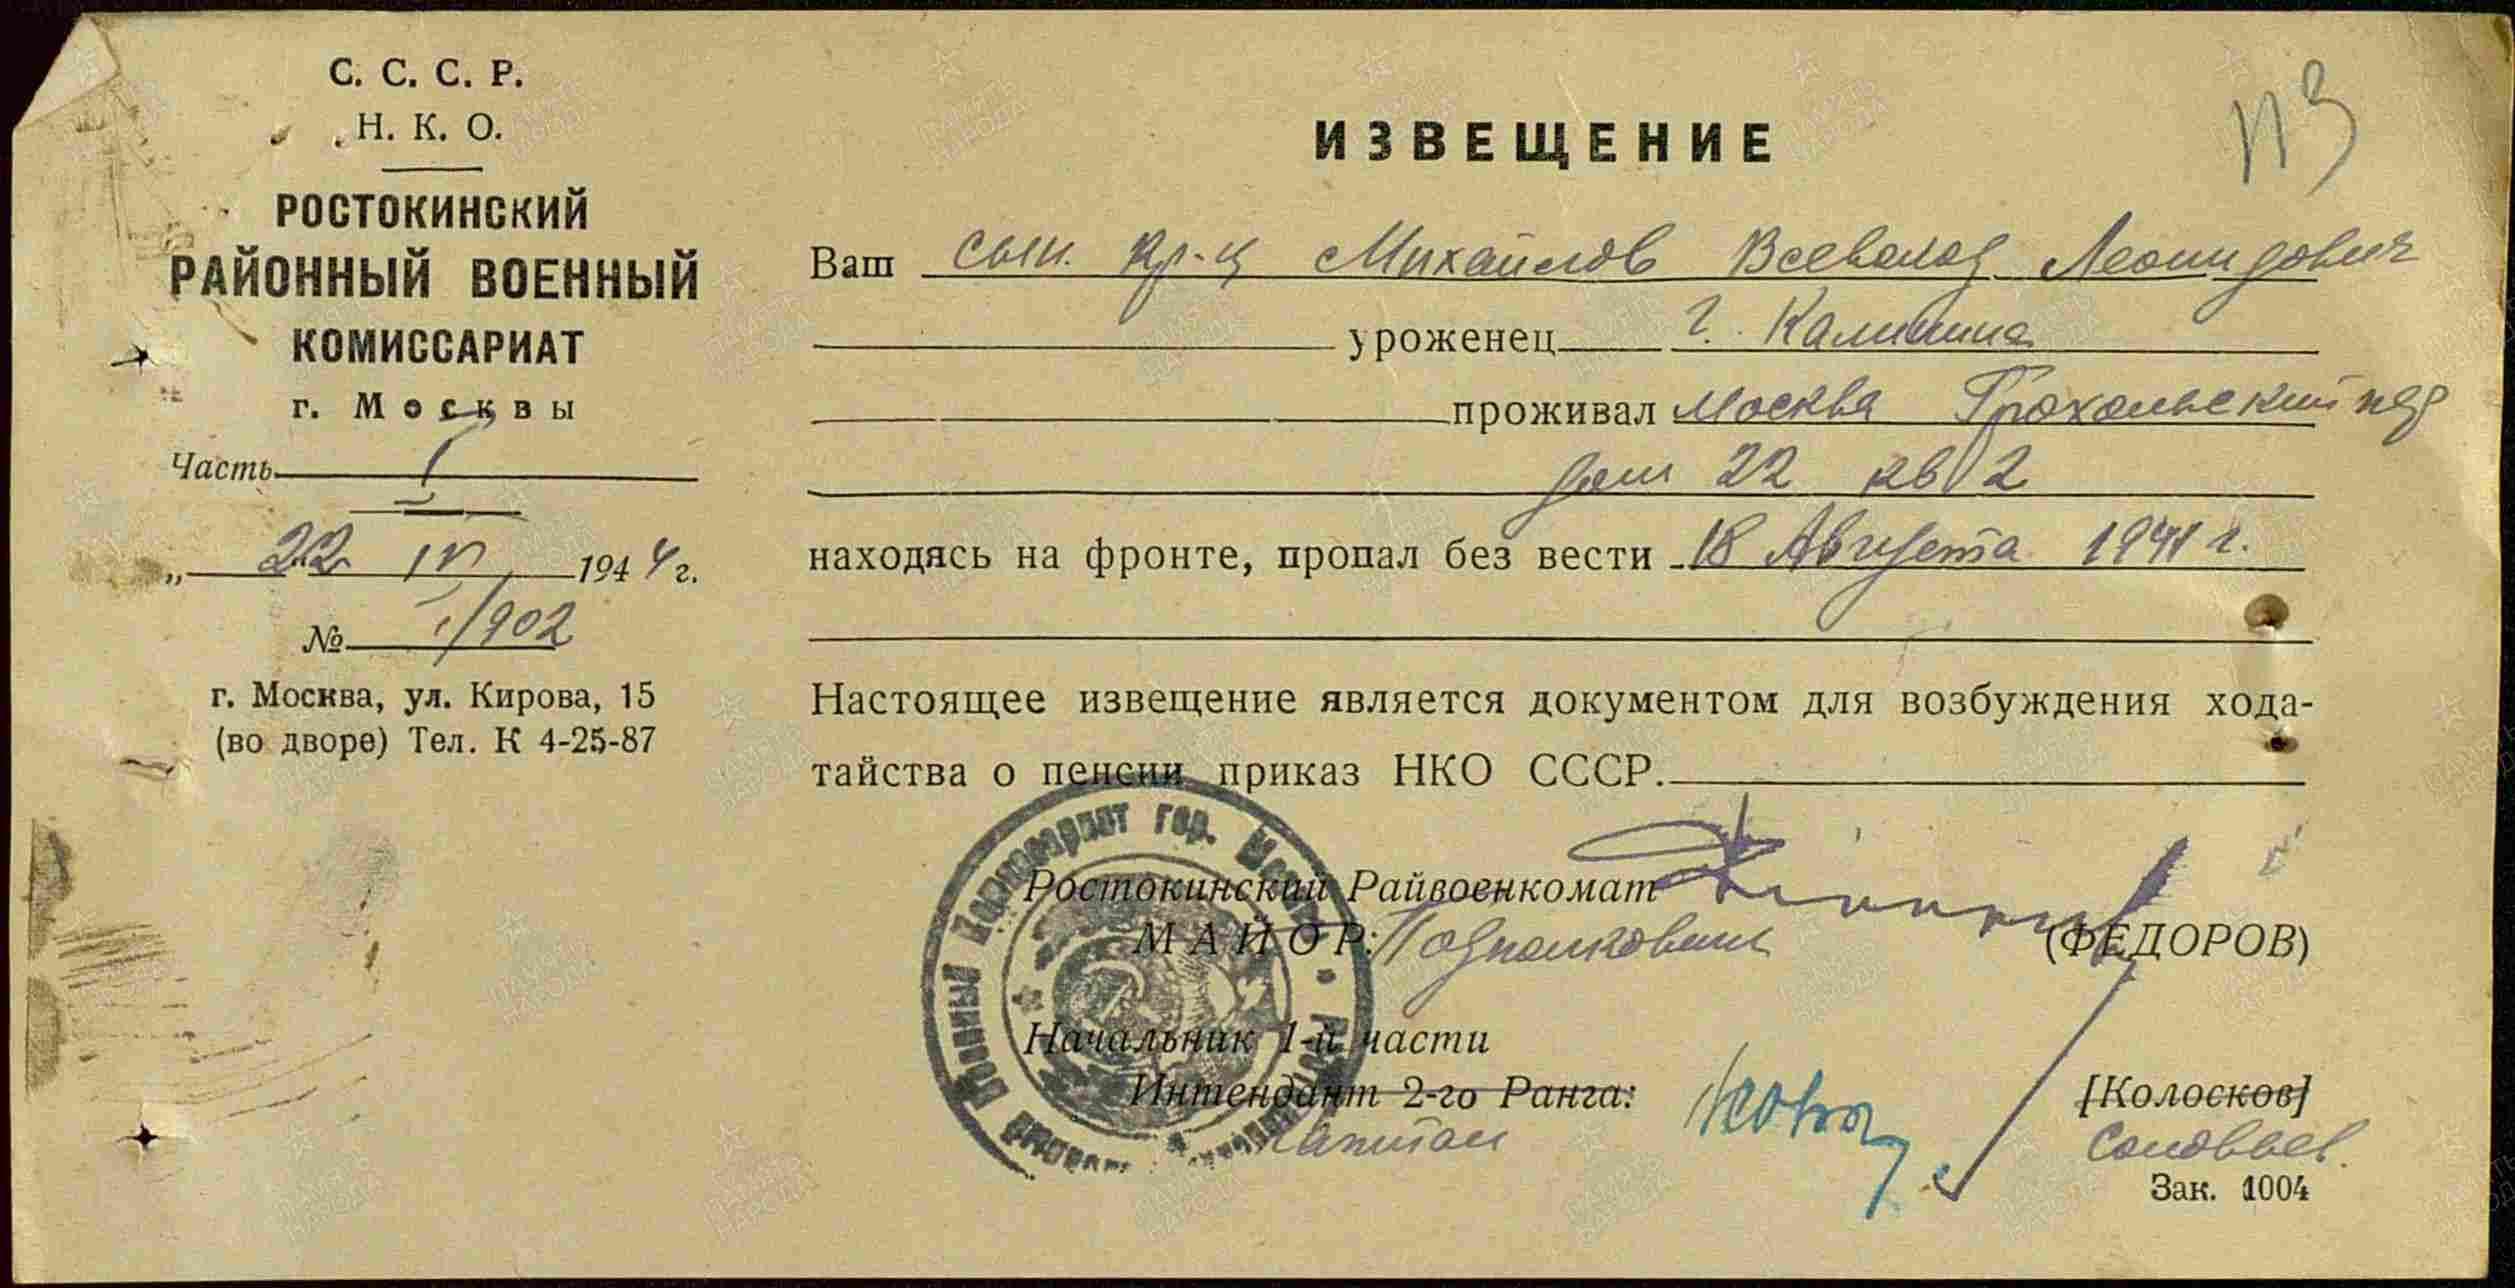 С. С. С. Р.
Н. К. О.
РОСТОКИНСКИЙ
РАЙОННЫЙ ВОЕННЫЙ
КОМИССАРИАТ
г. Москвы
Часть I
„ 22 IV 1944 г.
№ 1/902
г. Москва, ул. Кирова, 15
(во дворе) Тел. К 4-25-87
113
ИЗВЕЩЕНИЕ
Ваш сын. кр-ц Михайлов Всеволод Леонидович
уроженец г. Калинина
проживал Москва Грохольский пер
дом 22 кв 2
находясь на фронте, пропал без вести 18 Августа 1941 г.
Настоящее извещение является документом для возбуждения хода-
тайства о пенсии приказ НКО СССР.
Ростокинский Райвоенкомат
МАЙОР: Подполковник (ФЕДОРОВ)
Начальник 1-й части
Интендант 2-го Ранга: [Колосков]
Капитан Соловьев.
Зак. 1004
Военный Комиссариат гор. Москвы
ПАМЯТЬ НАРОДА